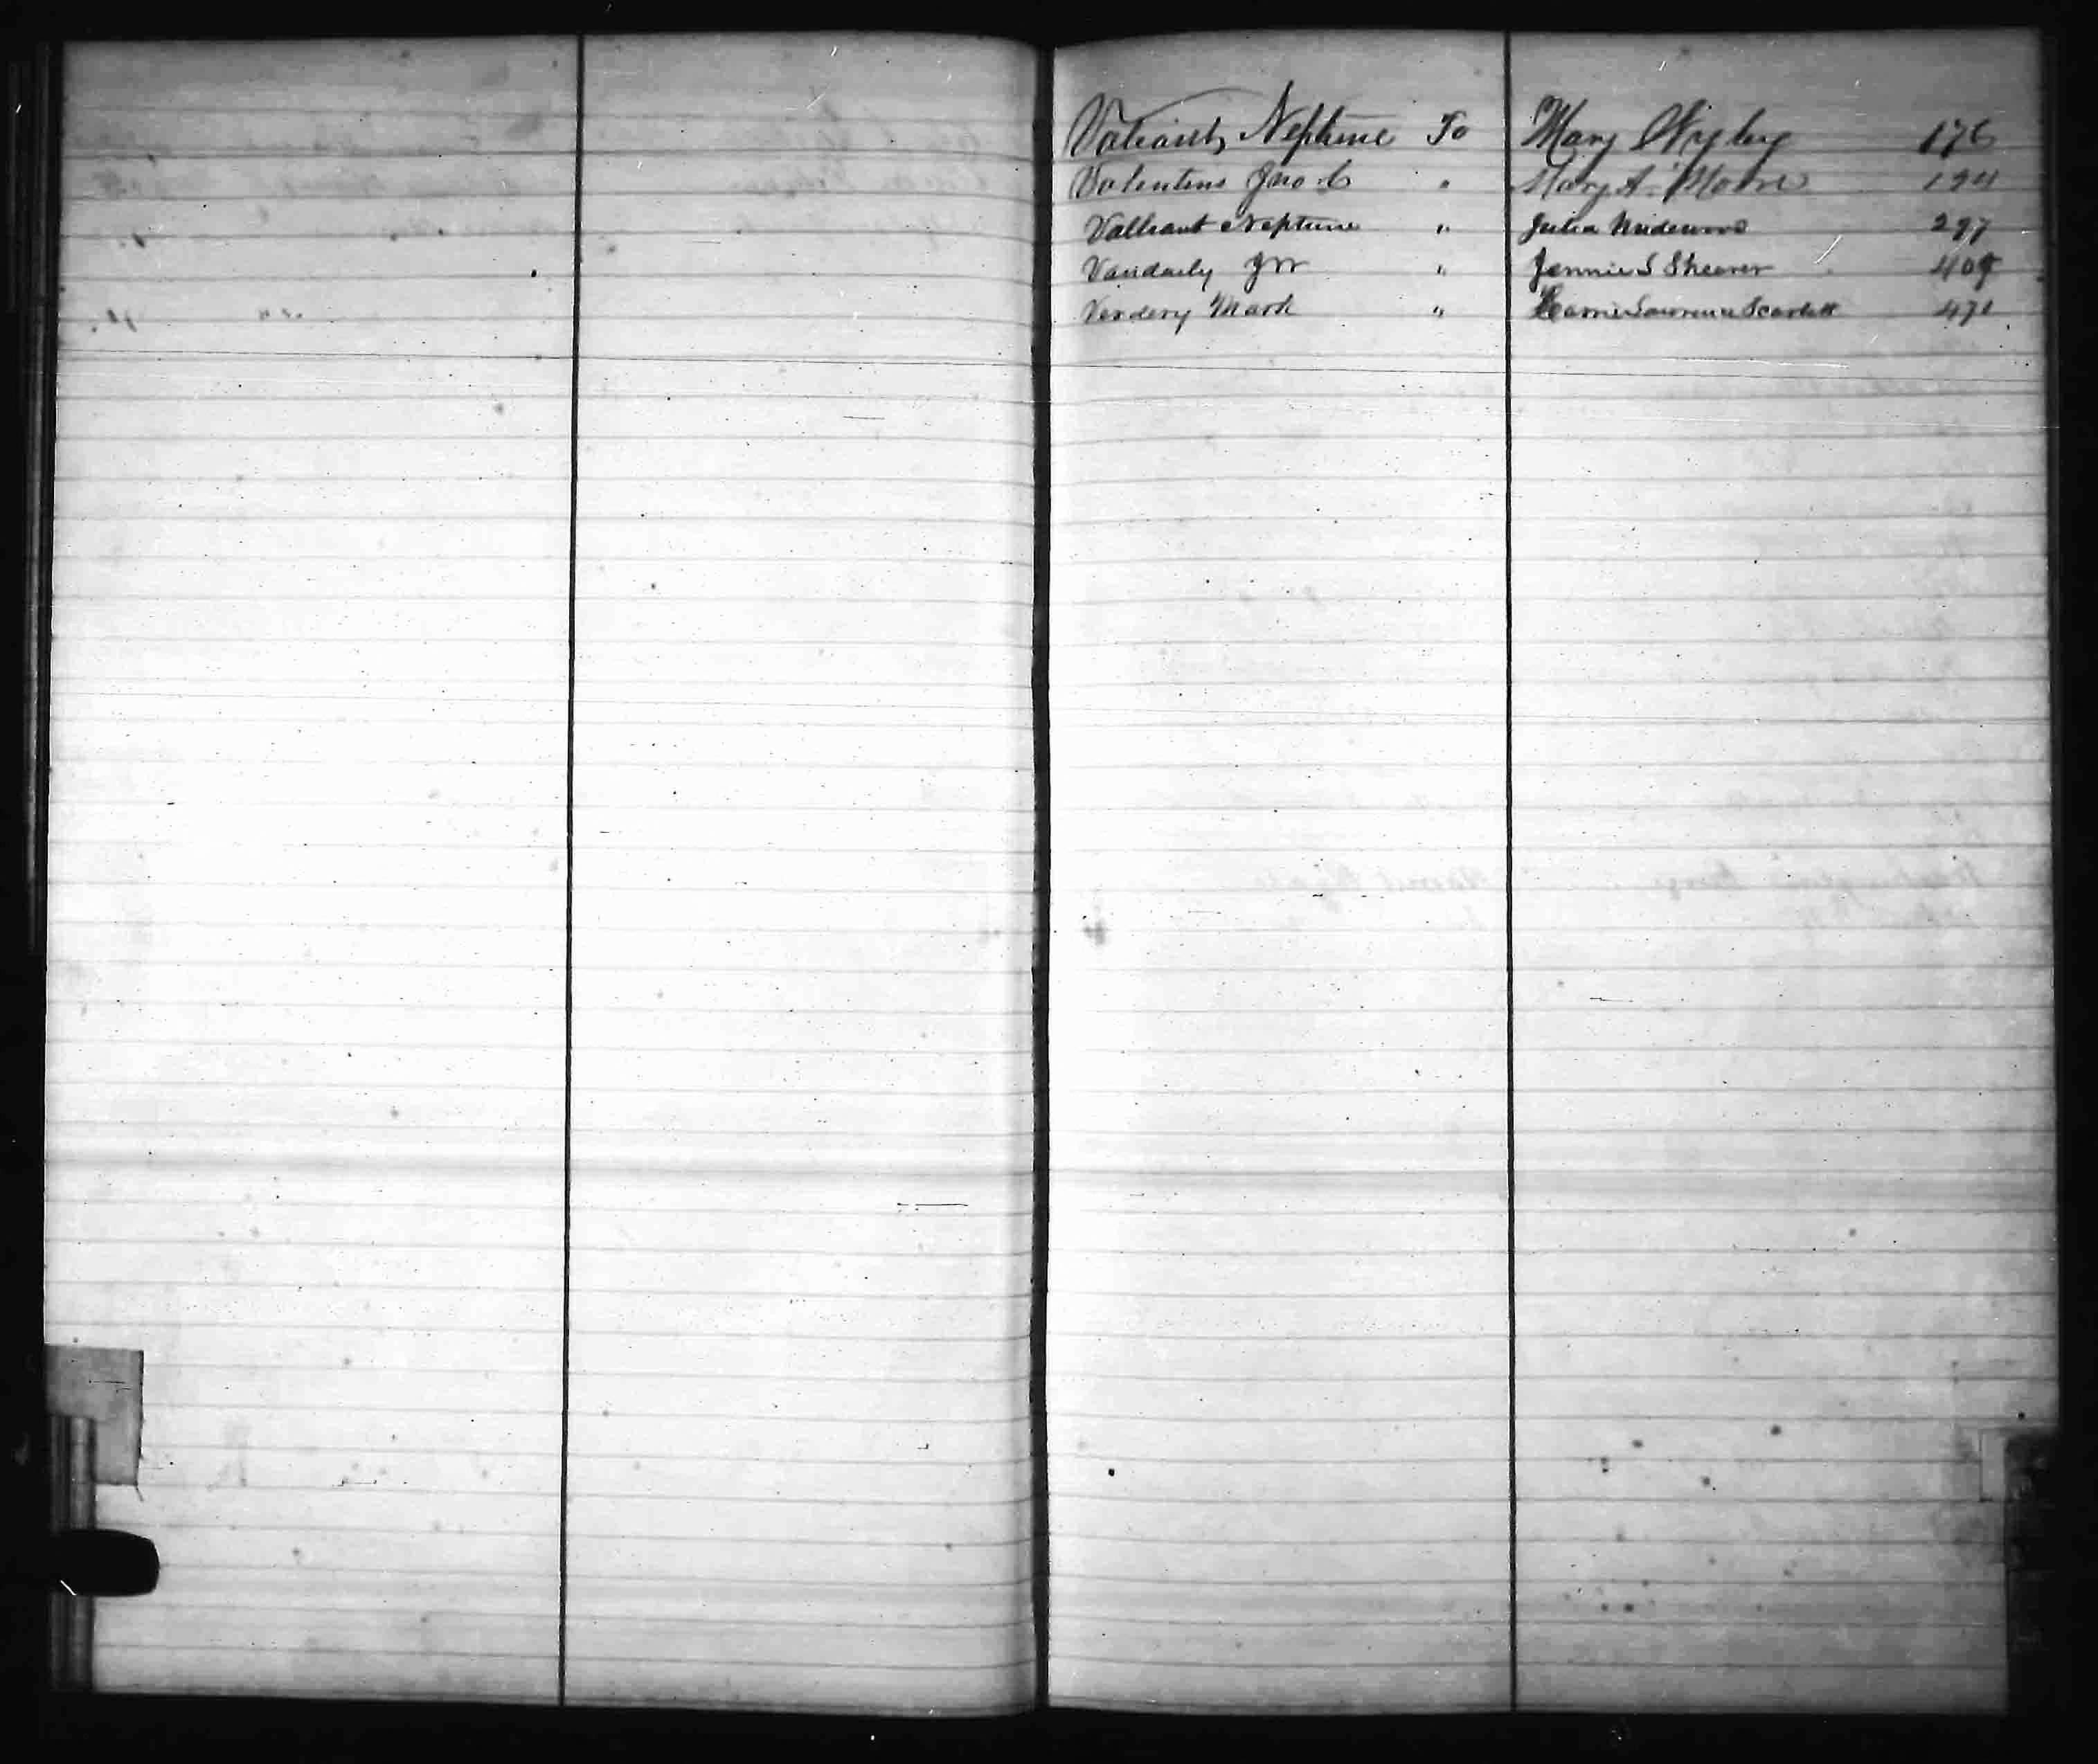 Valiant, Neptune To Mary Wigley 176
Valentine Jno C " Mary A. Moore 194
Valliant Neptune " Julia 297
Vandaly Jno " Jennie S Shearer 409
Verdery Mark " Carrie Lawrence Scarlett 471